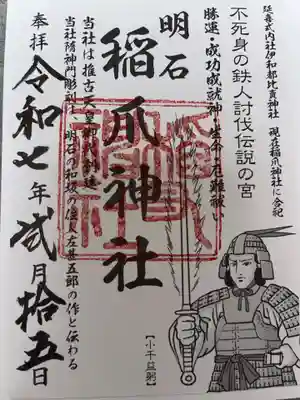 延喜式内社伊和都比賣神社 現在稲爪神社に合祀
不死身の鉄人討伐伝説の宮
勝運・成功成就神・生命・厄難祓い
明石
稲爪神社
当社は推古天皇御代創建
当社随神門彫刻は、明石の和坂の住人左甚五郎の作と伝わる
奉拝
令和七年弐月拾五日
【小千益躬】